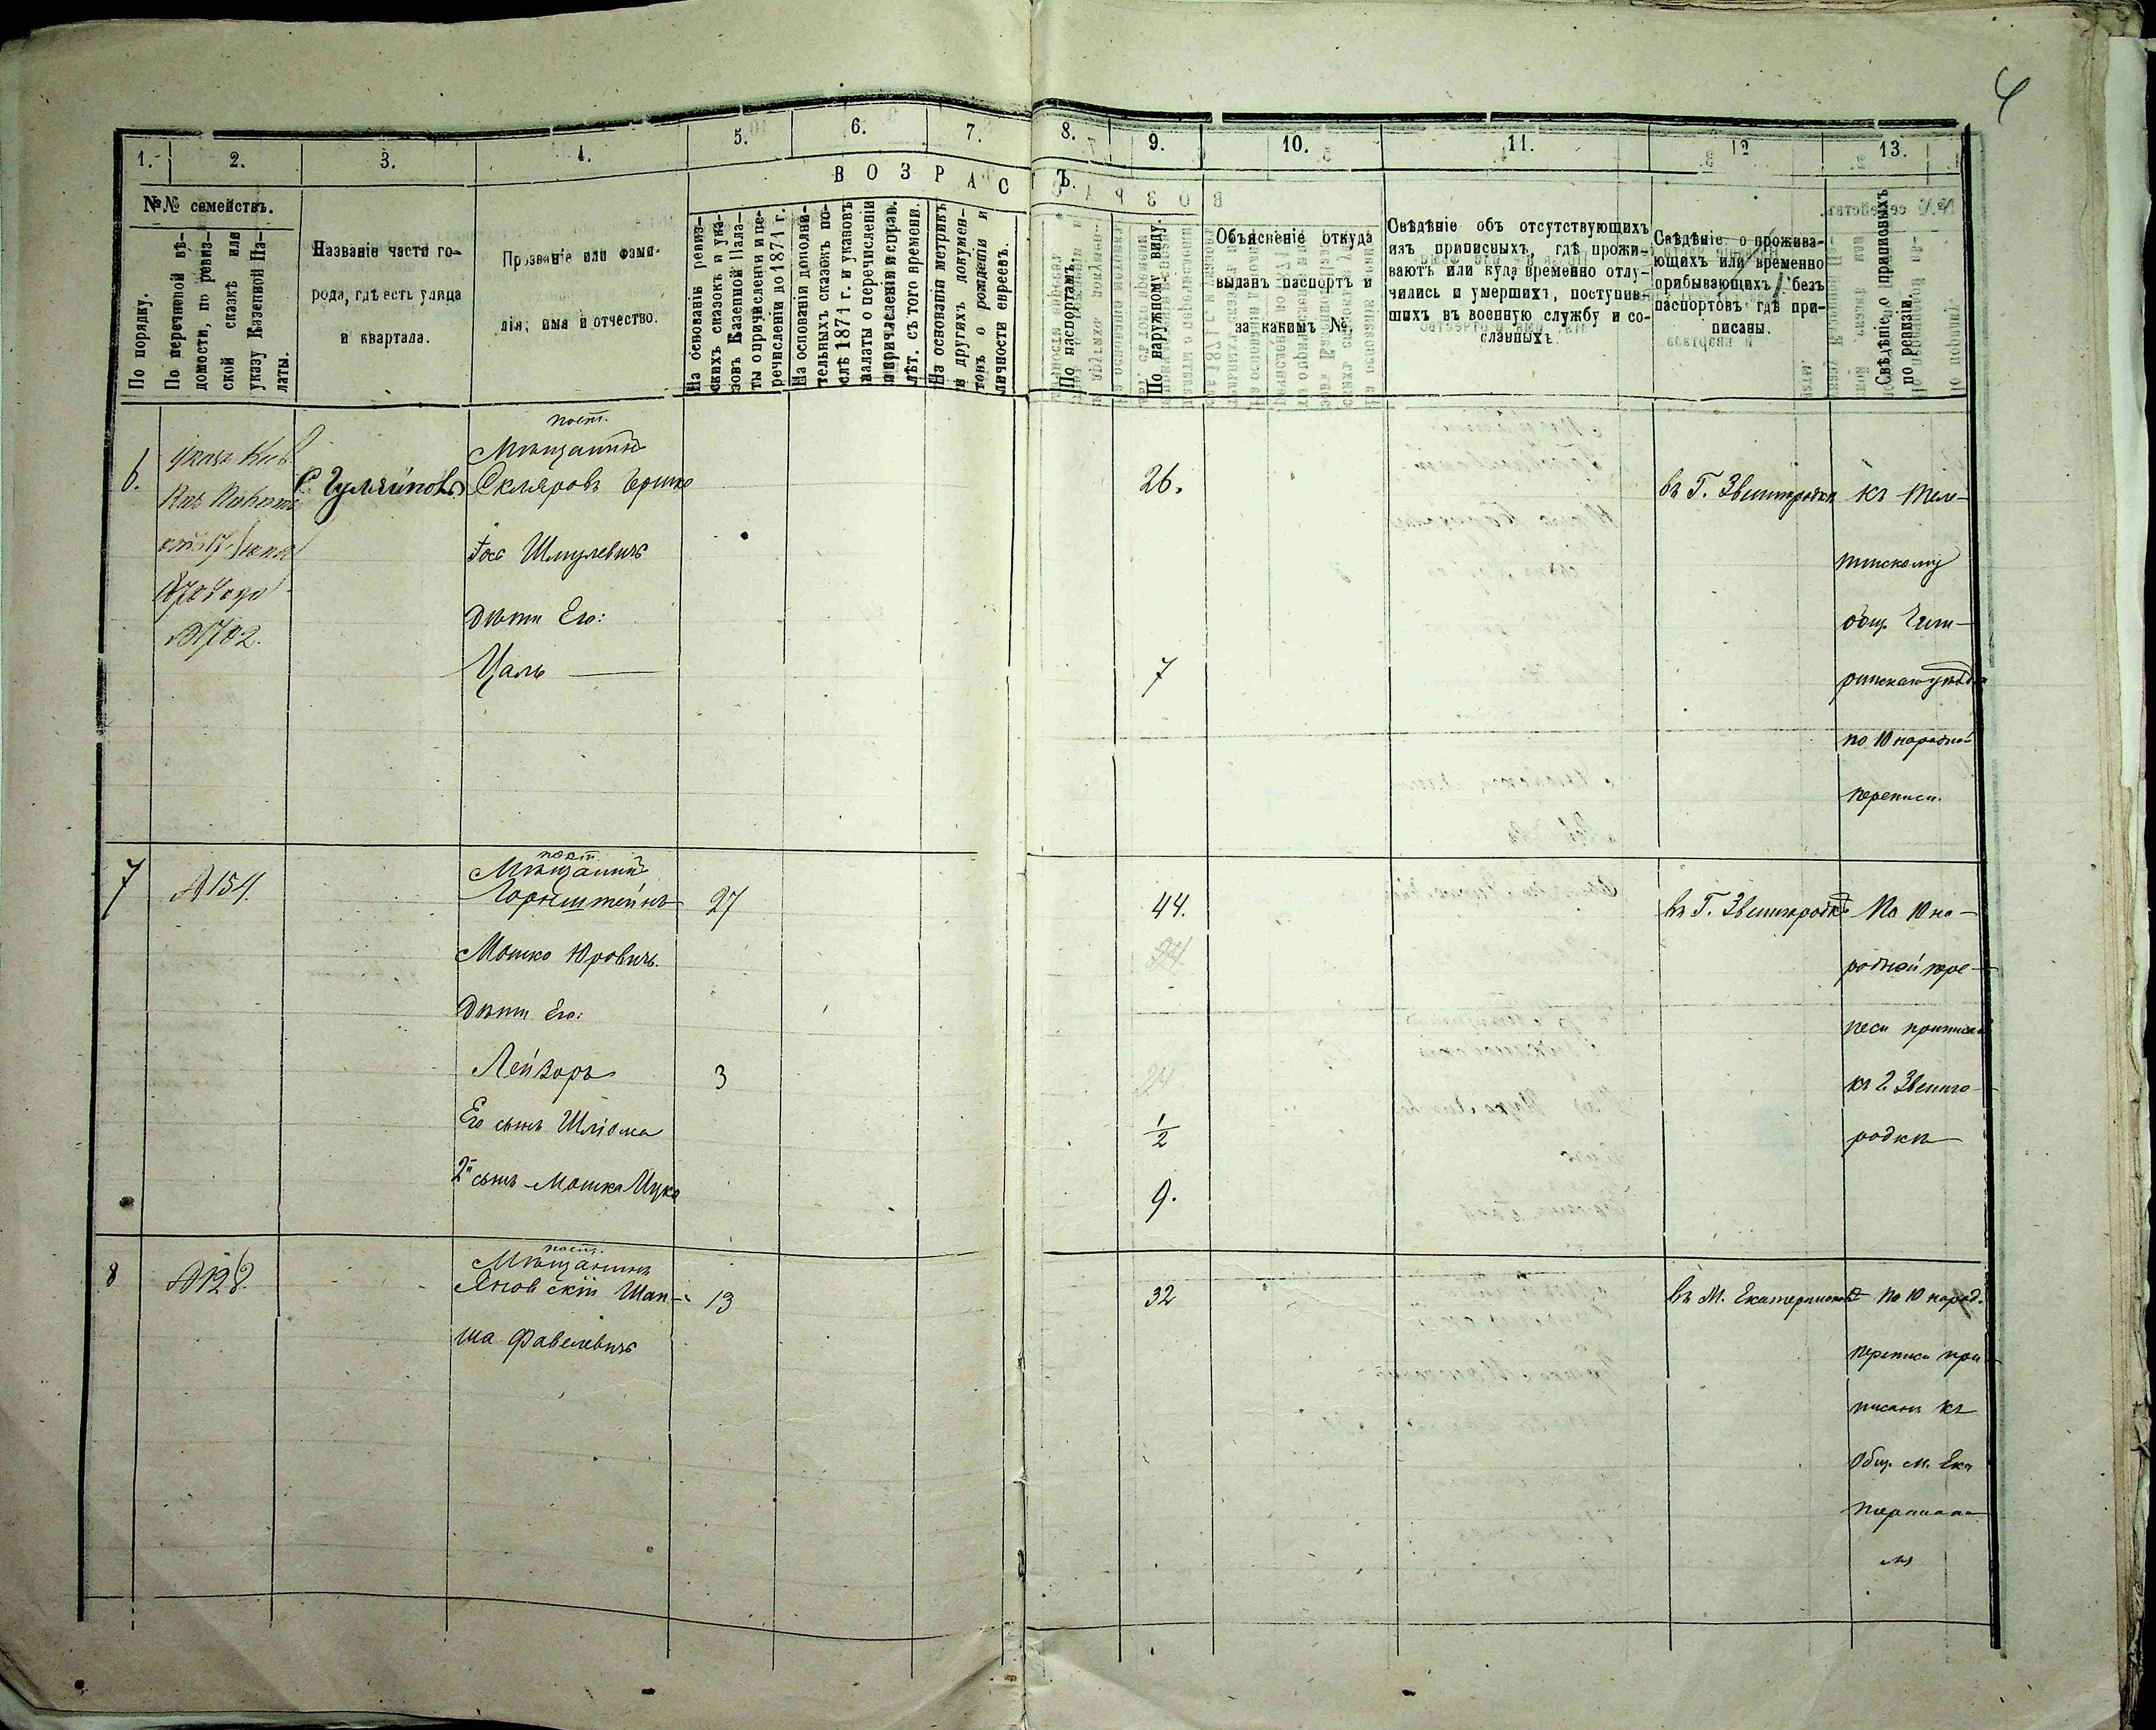 4
1. 2. 3. 4. 5. 6. 7. 8. 9. 10. 11. 12 13.
ВОЗРАСТЪ.
№№ семействъ.
По порядку.
По перечневой вѣ-
домости, по ревиз-
ской сказкѣ или
указу Казенной Па-
латы.
Названіе части го-
рода, гдѣ есть улица
и квартала.
Прозваніе или фами-
лія, имя и отчество.
На основаніи ревиз-
скихъ сказокъ и ука-
зовъ Казенной Пала-
ты о причисленіи и пе-
речисленіи до 1871 г.
На основаніи дополни-
тельныхъ сказокъ по-
слѣ 1871 г. и указовъ
палаты о перечисленіи
и причисленіи и исправ.
лѣт. съ того времени.
На основаніи метрикъ
и другихъ докумен-
товъ о рожденіи и
личности евреевъ.
По паспортамъ.
По наружному виду.
Объясненіе откуда
выданъ паспортъ и
за какимъ №.
Свѣдѣніе объ отсутствующихъ
изъ приписныхъ, гдѣ прожи-
ваютъ или куда временно отлу-
чились и умершихъ, поступив-
шихъ въ военную службу и со-
сланныхъ.
Свѣдѣніе о прожива-
ющихъ или временно
прибывающихъ безъ
паспортовъ гдѣ при-
писаны.
Свѣдѣніе о приписныхъ
по ревизіи.
6.
указъ Кіев.
1702.
пост.
Мѣщанинъ
Скляровъ Гершко
26.
въ Г. Звенигородкѣ
къ Теле-
Іось Шмулевичъ
пинскому
Дѣти Его:
общ. Чиги-
Цаль —
7
ринскаго уѣзда
по 10 народной
переписи.
7
№ 154.
пост.
Мѣщанинъ
Горнштейнъ
27
44.
въ Г. Звенигородкѣ
По 10 на-
Мошко Юровичъ.
родной пере-
Дѣти Его:
писи приписанъ
Лейзоръ
3
24
къ г. Звениго-
Его сынъ Шліома
1/2
родкѣ
2й сынъ Мошка Ицко
9.
8
№ 128.
пост.
Мѣщанинъ
Яновскій Шап-
13
32
въ М. Екатеринополѣ
По 10 народ.
ша Фавелевичъ
переписи при-
писанъ къ
Общ. м. Ека
теринопо-
ля